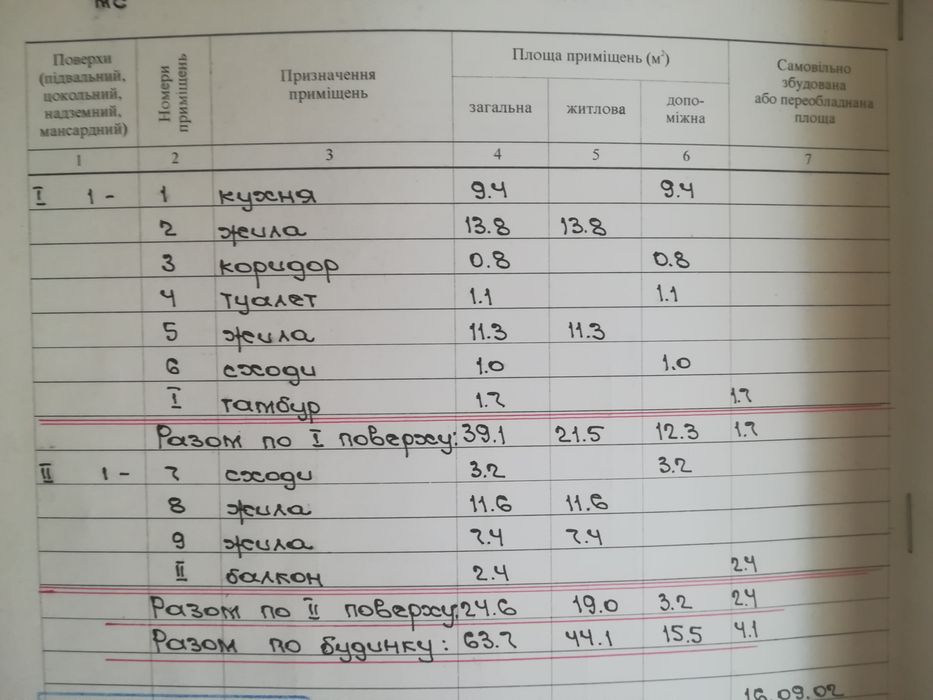 МС
Поверхи (підвальний, цокольний, надземний, мансардний) | Номери приміщень | Призначення приміщень | Площа приміщень (м²) | Самовільно збудована або переобладнана площа
загальна | житлова | допо-міжна
1 2 3 4 5 6 7
I 1- 1 кухня 9.4 9.4
2 жила 13.8 13.8
3 коридор 0.8 0.8
4 туалет 1.1 1.1
5 жила 11.3 11.3
6 сходи 1.0 1.0
I тамбур 1.7 1.7
Разом по I поверху: 39.1 21.5 12.3 1.7
II 1- 7 сходи 3.2 3.2
8 жила 11.6 11.6
9 жила 7.4 7.4
II балкон 2.4 2.4
Разом по II поверху: 24.6 19.0 3.2 2.4
Разом по будинку: 63.7 44.1 15.5 4.1
16.09.02